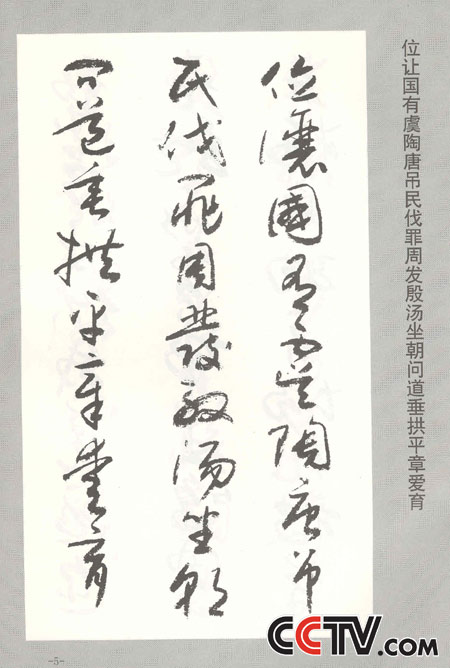 位让国有虞陶唐吊民伐罪周发殷汤坐朝问道垂拱平章爱育
位讓國有虞陶唐吊
民伐罪周發殷湯坐朝
问道垂拱平章愛育
-5-
CCTV.com